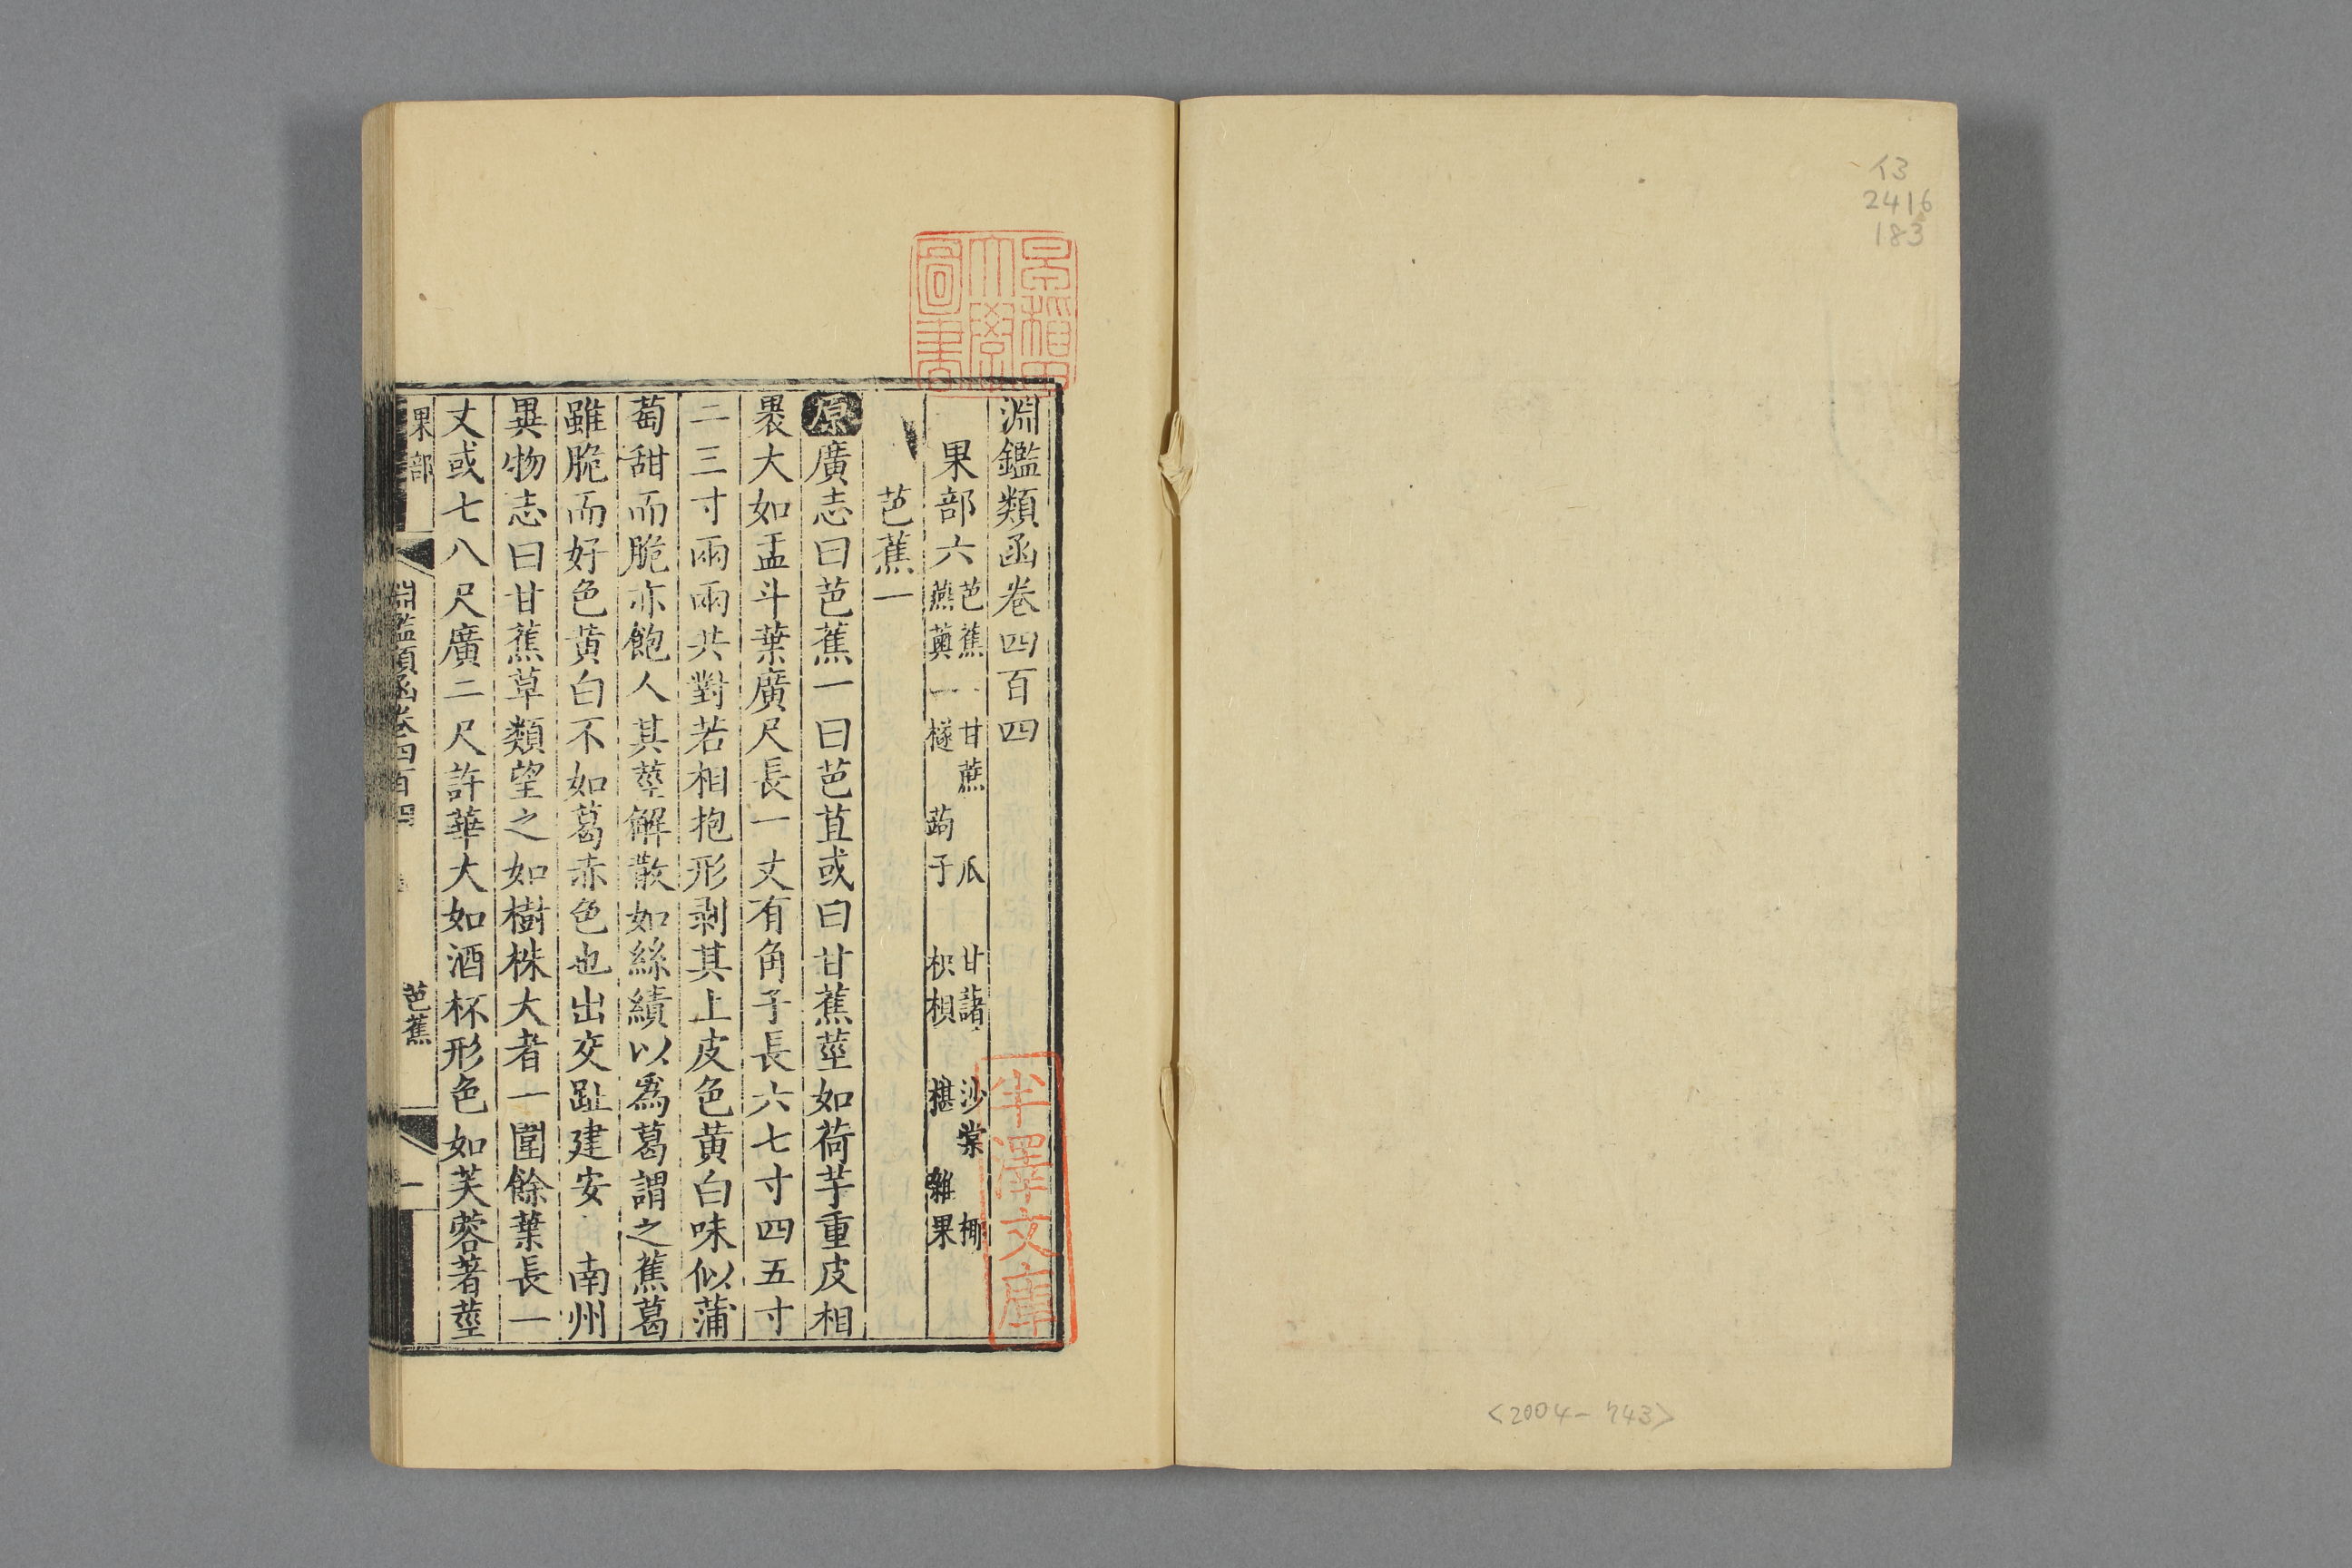 イ3
2416
183
<2004-743>
早稻田大學圖書
淵鑑類函卷四百四
果部六 芭蕉 甘蔗 瓜 甘藷 沙棠 椰
燕薁 一 檖 蒟子 枳椇 椹 雜果
芭蕉一
原廣志曰芭蕉一曰芭苴或曰甘蕉莖如荷芋重皮相
裹大如盂斗葉廣尺長一丈有角子長六七寸四五寸
二三寸兩兩共對若相抱形剥其上皮色黄白味似蒲
萄甜而脆亦飽人其莖解散如絲績以爲葛謂之蕉葛
雖脆而好色黄白不如葛赤色也出交趾建安 南州
異物志曰甘蕉草類望之如樹株大者一圍餘葉長一
丈或七八尺廣二尺許華大如酒杯形色如芙蓉著莖
果部 淵鑑類函卷四百四 芭蕉 一
半澤文庫